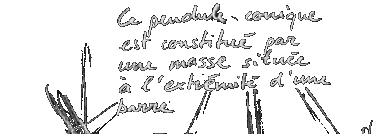 Ce pendule conique
est constitué par
une masse située
à l'extrémité d'une
barre